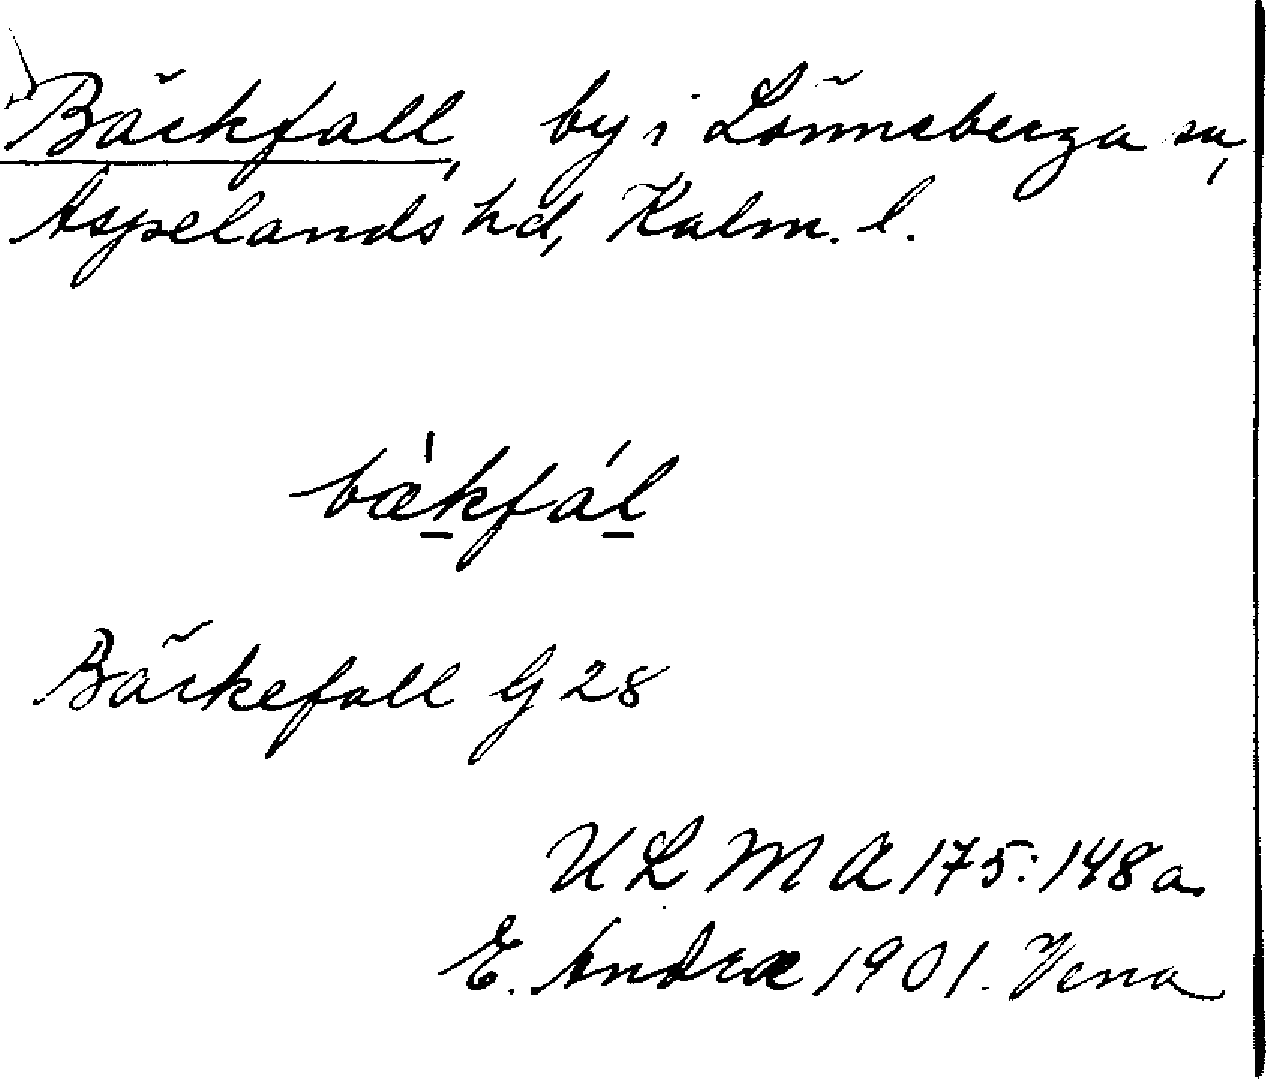 Bäckfall, by i Lönneberga sn,
Aspelands hd, Kalm. l.
bæ̀kfál
Bäckefall G 28
ULMA 175:148a
E. Andræ 1901. Vena